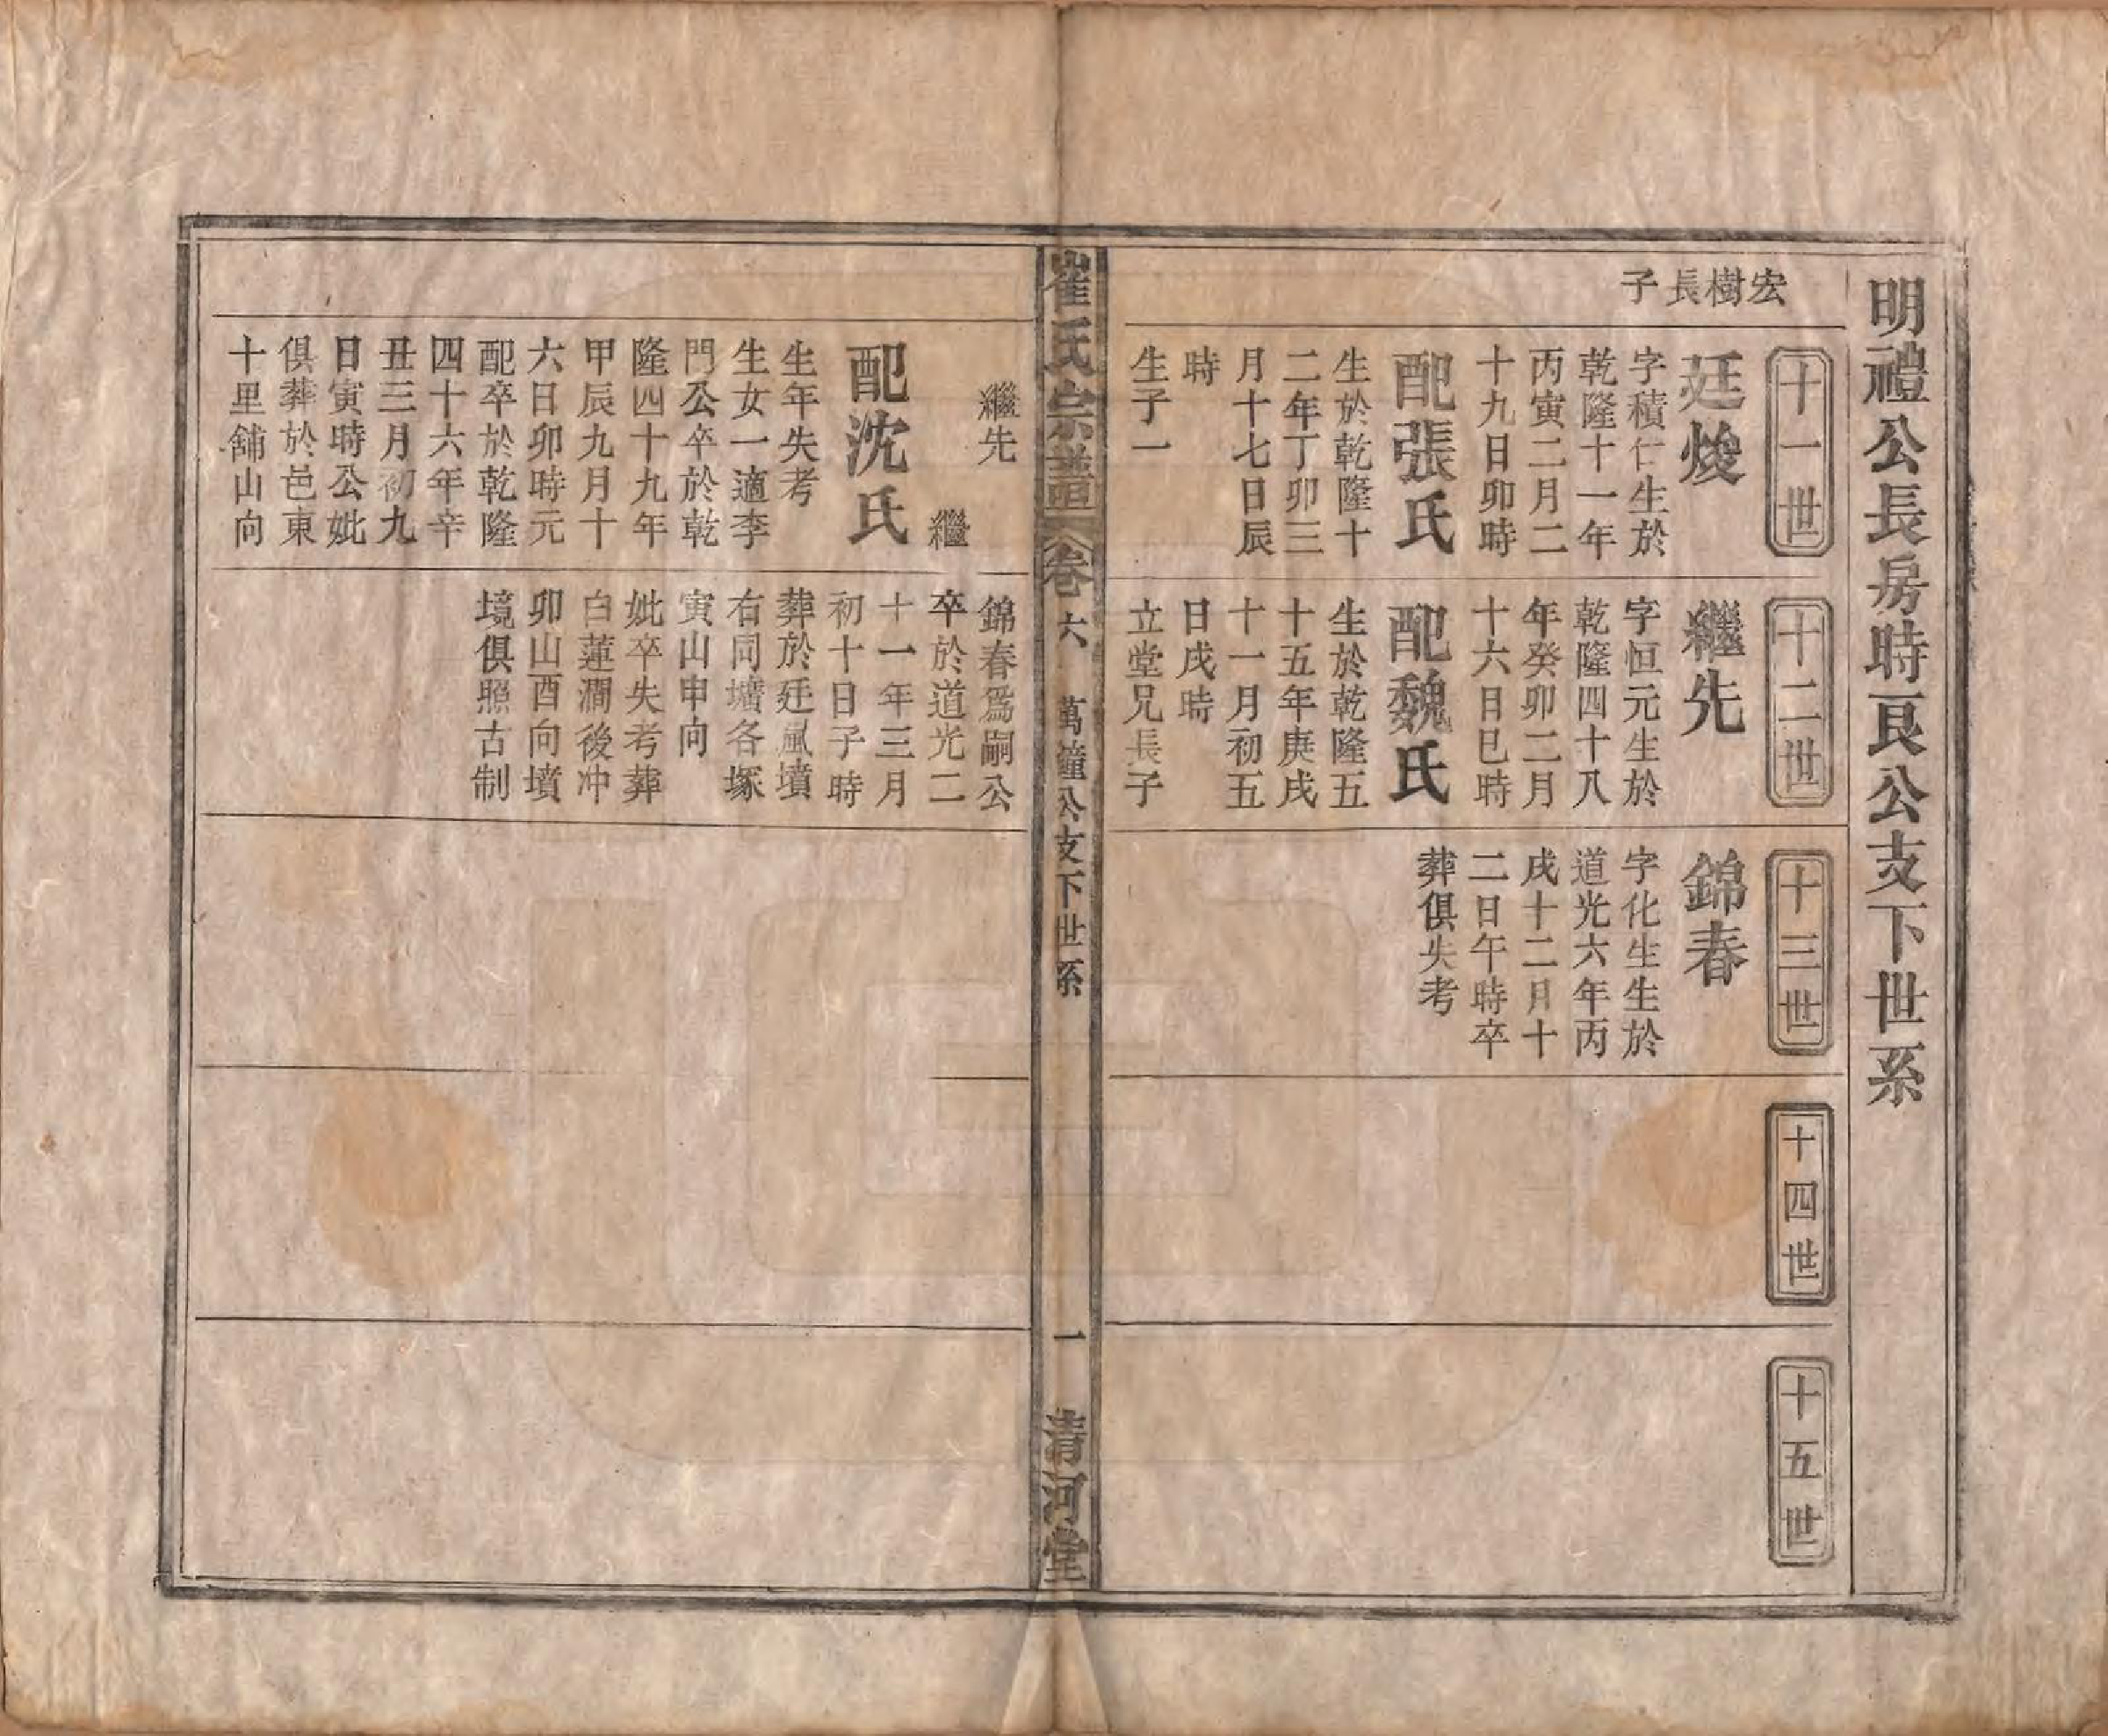 明禮公長房時良公支下世系
宏樹長子
十一世
廷焌
字積仁生於
乾隆十一年
丙寅二月二
十九日卯時
配張氏
生於乾隆十
二年丁卯三
月十七日辰
時
生子一
十二世
繼先
字恒元生於
乾隆四十八
年癸卯二月
十六日巳時
配魏氏
生於乾隆五
十五年庚戌
十一月初五
日戌時
立堂兄長子
十三世
錦春
字化生生於
道光六年丙
戌十二月十
二日午時卒
葬俱失考
十四世
十五世
崔氏宗譜
卷六
萬鐘公支下世系
一
清河堂
繼先
繼
配沈氏
生年失考
生女一適李
門公卒於乾
隆四十九年
甲辰九月十
六日卯時元
配卒於乾隆
四十六年辛
丑三月初九
日寅時公妣
俱葬於邑東
十里舖山向
錦春爲嗣公
卒於道光二
十一年三月
初十日子時
葬於廷風墳
右同壙各塚
寅山申向
妣卒失考葬
白蓮澗後冲
卯山酉向墳
境俱照古制